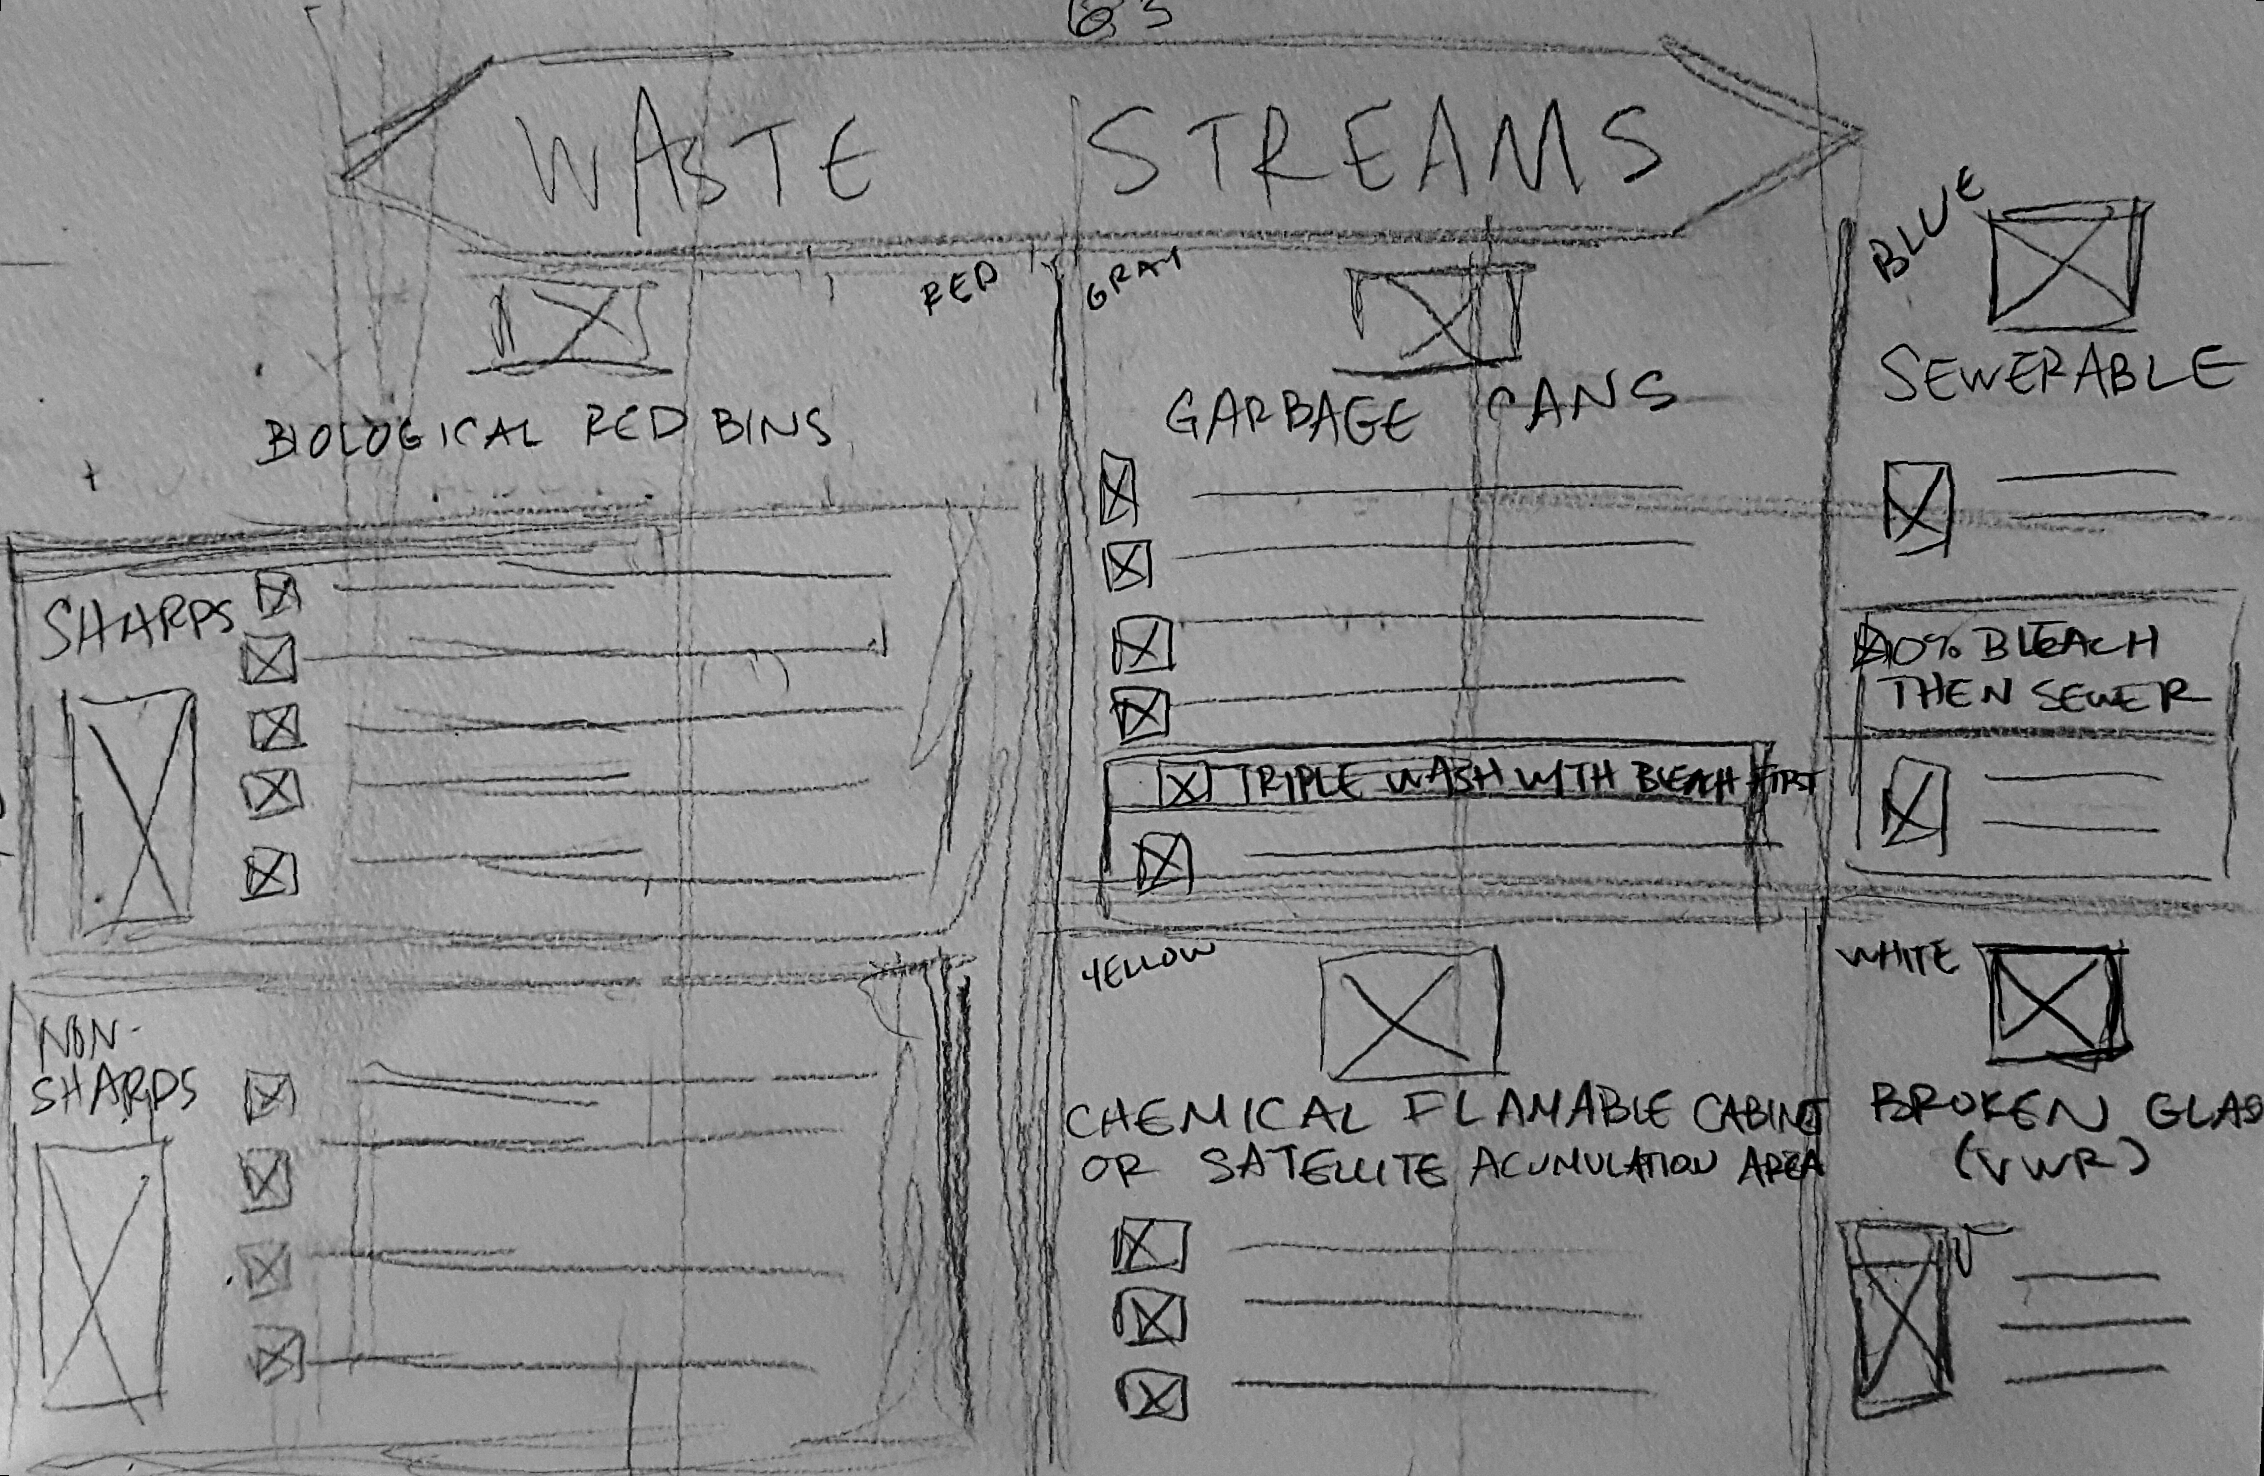 63
WASTE STREAMS
RED
BIOLOGICAL RED BINS
SHARPS
NON-
SHARPS
GRAY
GARBAGE CANS
TRIPLE WASH WITH BLEACH FIRST
YELLOW
CHEMICAL FLAMABLE CABINET
OR SATELLITE ACUMULATION AREA
BLUE
SEWERABLE
10% BLEACH
THEN SEWER
WHITE
BROKEN GLAS
(VWR)